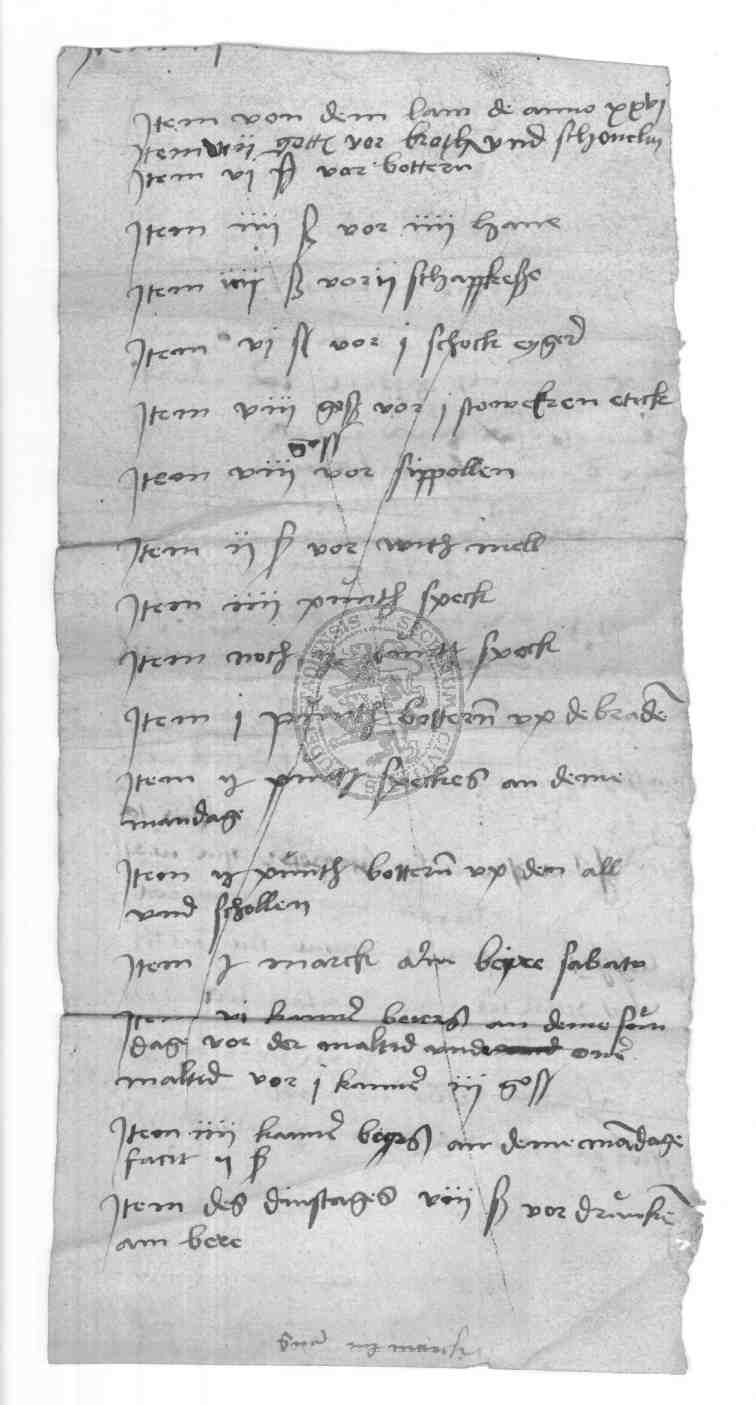 Item von dem lam de anno xxvi
Item viii gotß vor broth vnd schonelin
Item vi ß vor bottern
Item iiii ß vor iiii hane
Item iiij ß vor ii schapkeße
Item vi ß vor j schock eyger
Item viii goß vor j stoweken etick
goß
Item viii vor sippollen
Item ij ß vor with mell
Item iiii punth speck
Item noch punth speck
Item j punth botternn vp de braden
Item ij punth speckes an deme
mandage
Item ij punth botternn vp den all
vnd schollen
Item j marck bere sabato
Item vi kannen beers an deme son
dage vor der maltid vnd ouer
maltid vor j kannen iij goß
Item iiii kannen beers an deme mandage
facit ij ß
Item des dinstages viij ß vor druncken
am bere
marck